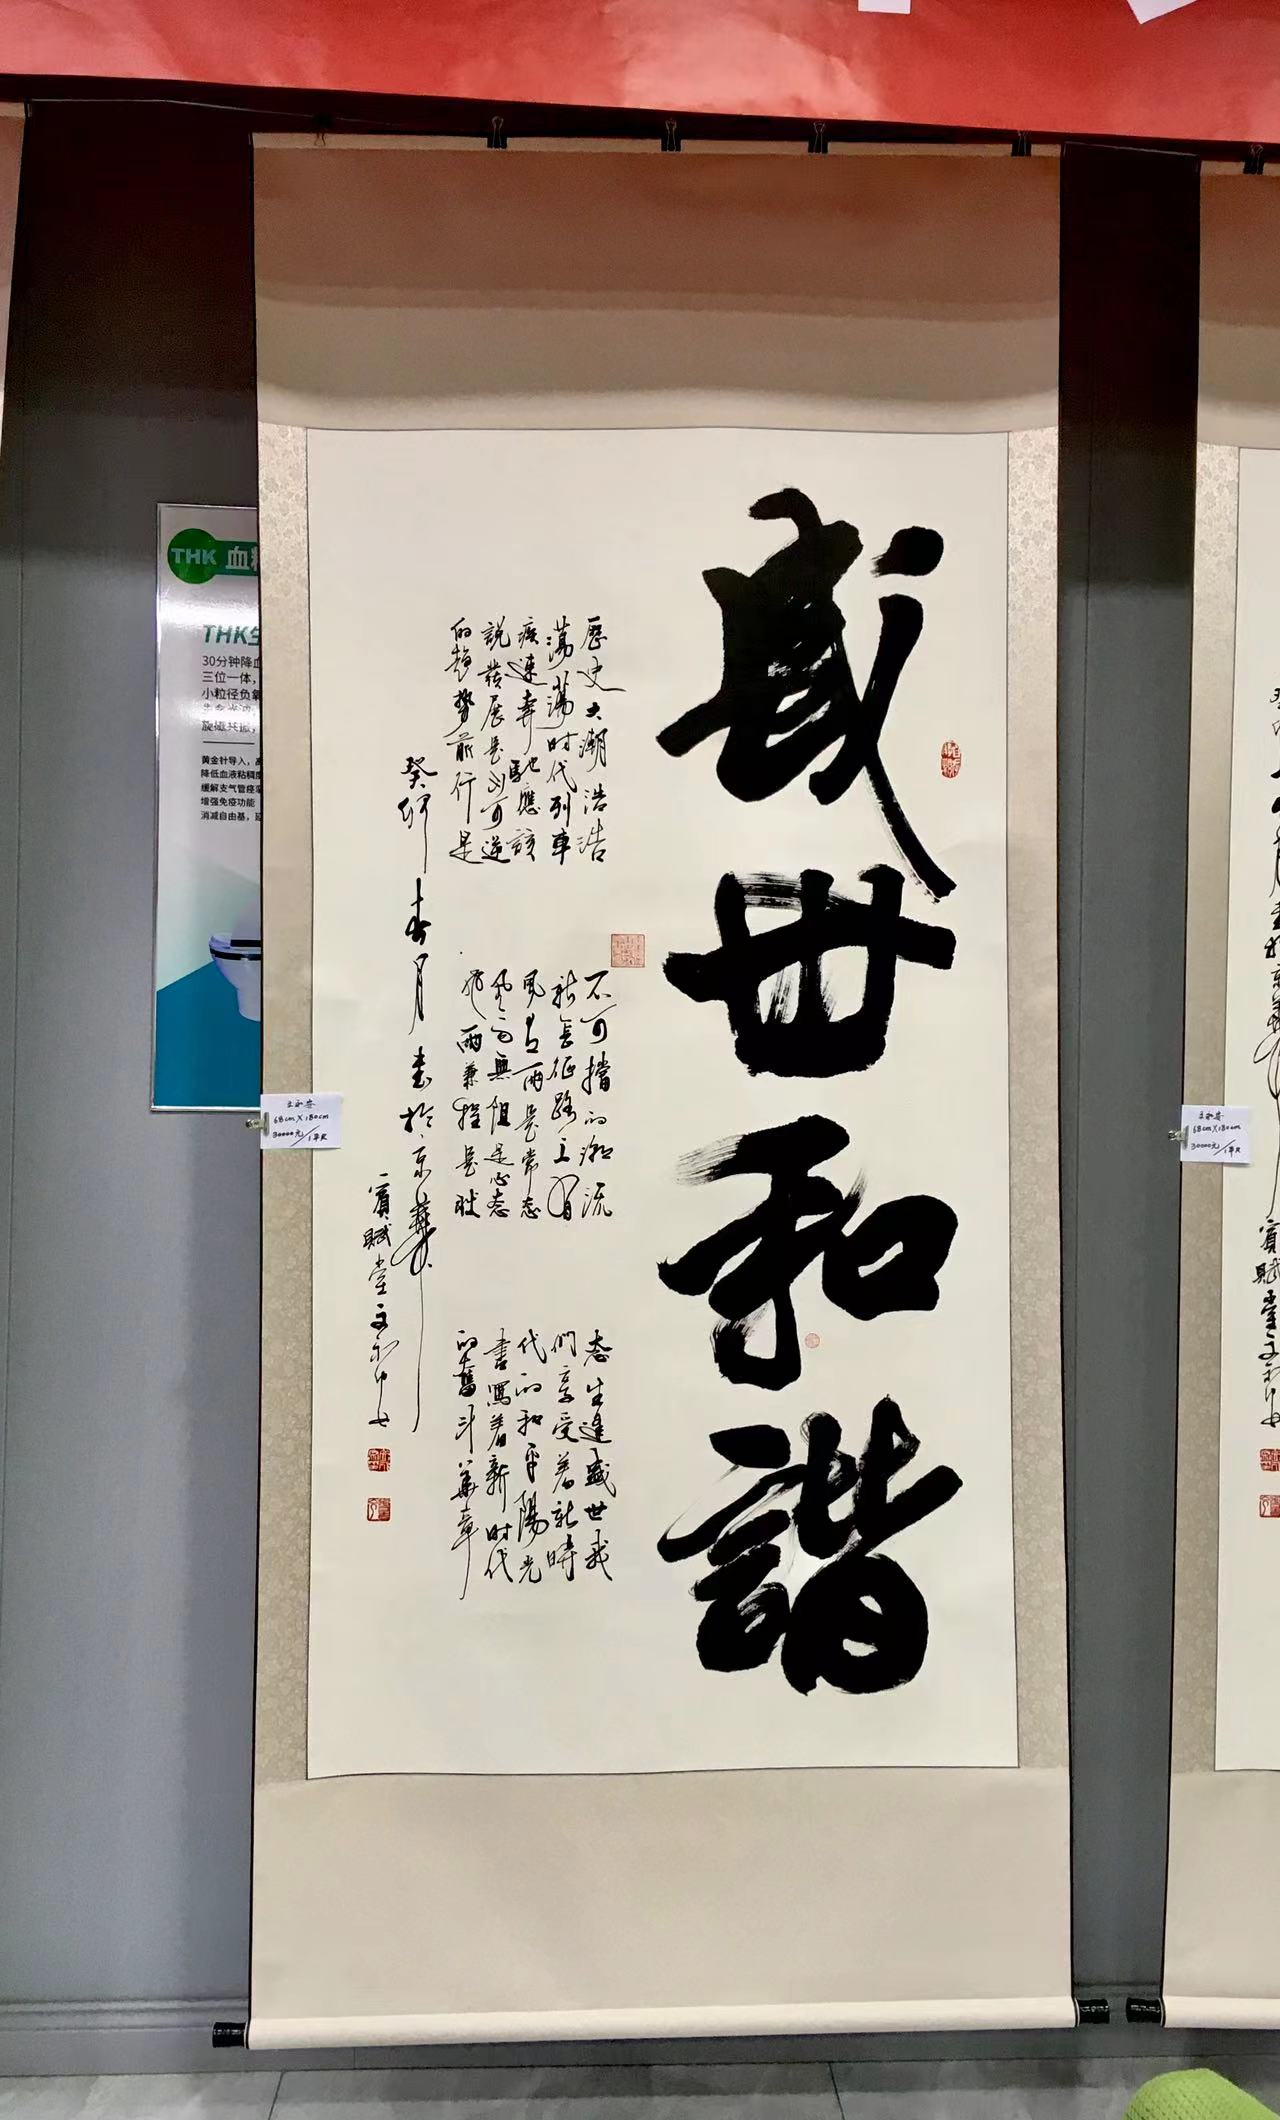 盛世和諧
歷史大潮浩浩
蕩蕩时代列車
疾速奔馳應該
說發展是不可逆
的趨勢前行是
不可擋的潮流
新長征路上有
風有雨是常态
風雨無阻是心态
兼程是狀
态生逢盛世我
們享受着新時
代的和平陽光
書寫着新时代
的奮斗華章
癸卯春月書於京華
賓賦堂
68cm×180cm
30000元/1平尺
68cm×180cm
30000元/1平尺
THK 血
THK
30分钟降血
三位一体，
小粒径负氧
旋磁共振，
黄金针导入，高
降低血液粘稠度
缓解支气管痉挛
增强免疫功能
消减自由基，延